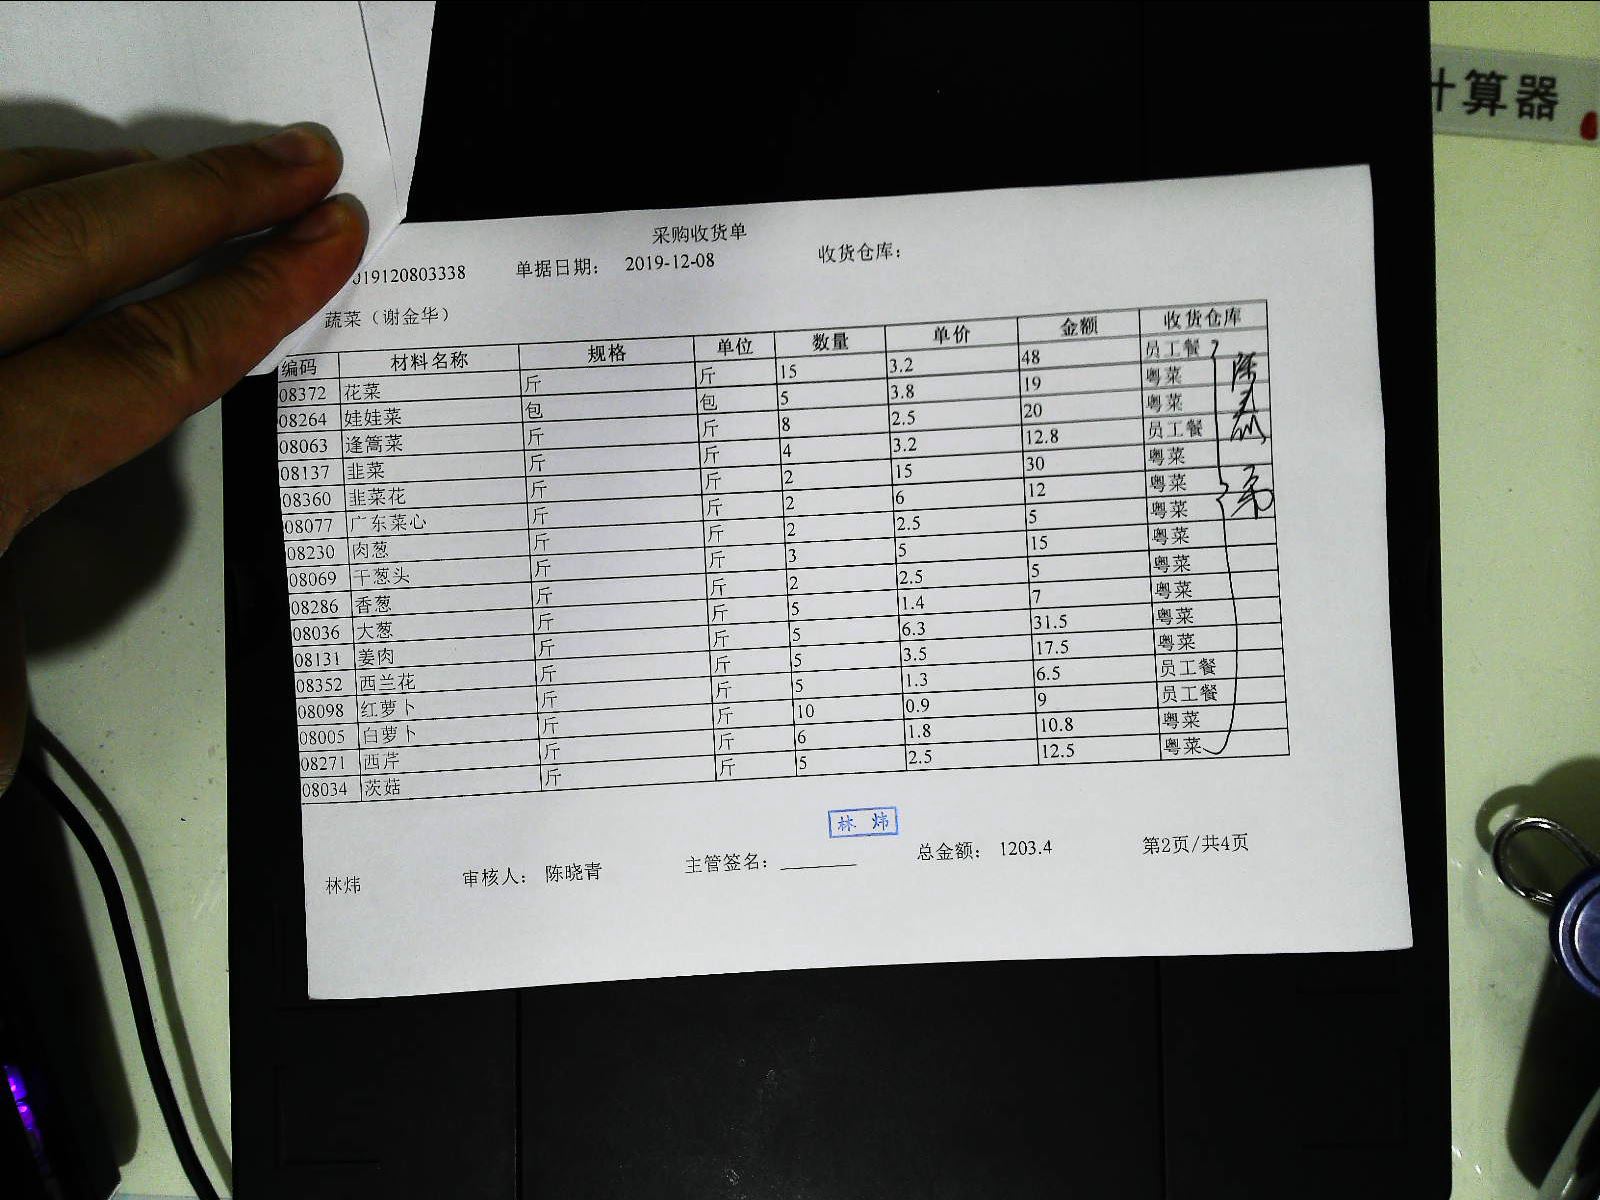 计算器
采购收货单
019120803338 单据日期: 2019-12-08 收货仓库:
蔬菜（谢金华）
编码 材料名称 规格 单位 数量 单价 金额 收货仓库
08372 花菜 斤 斤 15 3.2 48 员工餐
08264 娃娃菜 包 包 5 3.8 19 粤菜
08063 逢篙菜 斤 斤 8 2.5 20 粤菜
08137 韭菜 斤 斤 4 3.2 12.8 员工餐
08360 韭菜花 斤 斤 2 15 30 粤菜
08077 广东菜心 斤 斤 2 6 12 粤菜
08230 肉葱 斤 斤 2 2.5 5 粤菜
08069 干葱头 斤 斤 3 5 15 粤菜
08286 香葱 斤 斤 2 2.5 5 粤菜
08036 大葱 斤 斤 5 1.4 7 粤菜
08131 姜肉 斤 斤 5 6.3 31.5 粤菜
08352 西兰花 斤 斤 5 3.5 17.5 粤菜
08098 红萝卜 斤 斤 5 1.3 6.5 员工餐
08005 白萝卜 斤 斤 10 0.9 9 员工餐
08271 西芹 斤 斤 6 1.8 10.8 粤菜
08034 茨菇 斤 斤 5 2.5 12.5 粤菜
林炜
林炜 审核人: 陈晓青 主管签名: 总金额: 1203.4 第2页/共4页